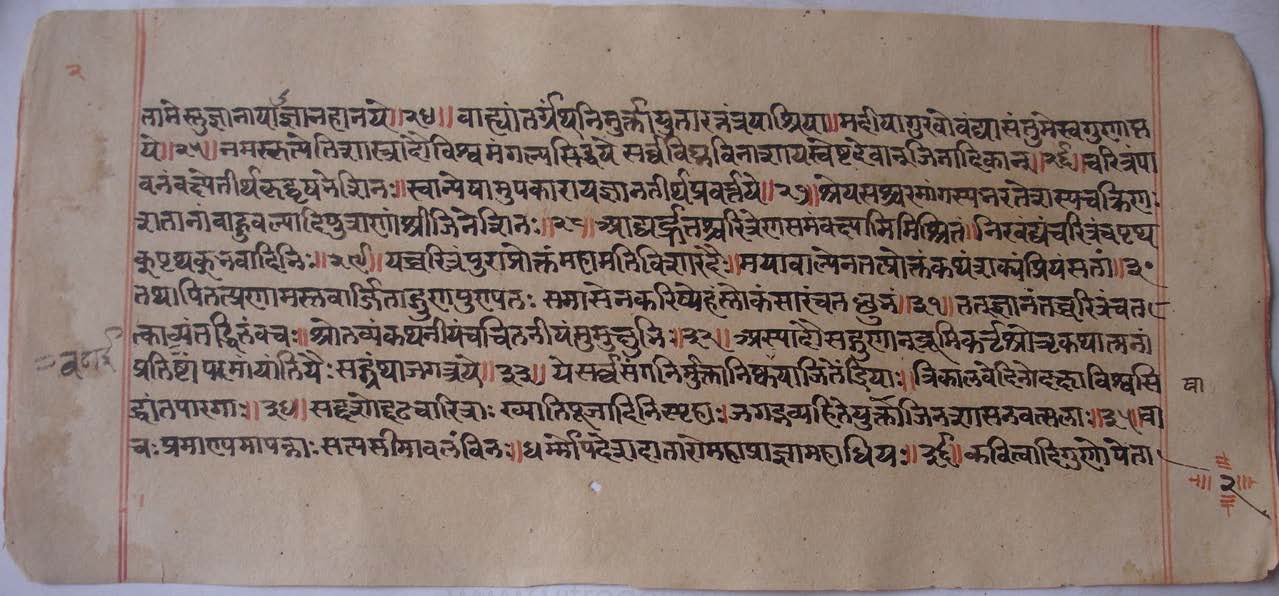 २
तामेस्तुज्ञानायाज्ञानहानये॥२४॥ बाह्यांतर्ग्रंथनिर्मुक्तायुतारत्नंत्रयाश्रिया॥मदीयागुरवोवंद्यासंतुमेस्वगुणाप्त
ये॥२५॥नमस्कृत्येतिशास्त्रादौविश्वमंगल्यसिद्धये सर्वविघ्नविनाशायस्वेष्टदेवानजिनादिकान्॥२६॥चरित्रंपा
वनंवक्ष्येतीर्थकृद्वृषभेशिनः॥स्वान्येषामुपकारायज्ञानतीर्थप्रवर्त्तये॥२७॥श्रेयसश्चरमांगस्यभरतेशस्यचक्रिणः
शतानांबाहुबल्यादिपुराणांश्रीजिनेशिनः॥२८॥आद्यर्द्धनश्चरित्रेणसमंवक्ष्यामिमिश्रितं॥निरवद्यंचरित्रंचपृथ
क्पृथक्नवादिभिः॥२९॥यच्चरित्रंपुराप्रोक्तंमहामतिविशारदैः॥मयाबाल्येनतत्प्रोक्तंकथंशक्यंप्रियंसतां॥३०
तथापितत्प्रणामस्तवार्जिताद्गुणपुण्यतः समासेनकरिष्येहंस्तोकंसारंचनध्रुवं॥३१॥तत्ज्ञानंतच्चरित्रंचत
त्काव्यंतद्धितंवचः॥श्रोतव्यंकथनीयंचचिंतनीयंमुमुक्षुभिः॥३२॥अस्यादौसद्गुणानवक्तृमिकर्तृश्रोतृकथात्मनां
प्रतिष्टांपरमायांतियैःसद्ग्रंथाजगत्रये॥३३॥येसर्वसंगनिर्मुक्तानिष्कषायाजितेंद्रियाः॥त्रिकालवेदिनोदक्षाविश्वसि
द्धांतपारगाः॥३४॥सदृशोदृढचारित्राःख्यातिपूजादिनिस्पृहाः॥जगद्भव्यहितेयुक्तोजिनशासनवत्सलाः॥३५॥वा
चःप्रमाण्यमापन्नाःसत्यसीमावलंबिनः॥धर्मोपदेशदातारोमहाप्राज्ञामहाधियः॥३६॥कवित्वादिगुणोपेता
वा
२